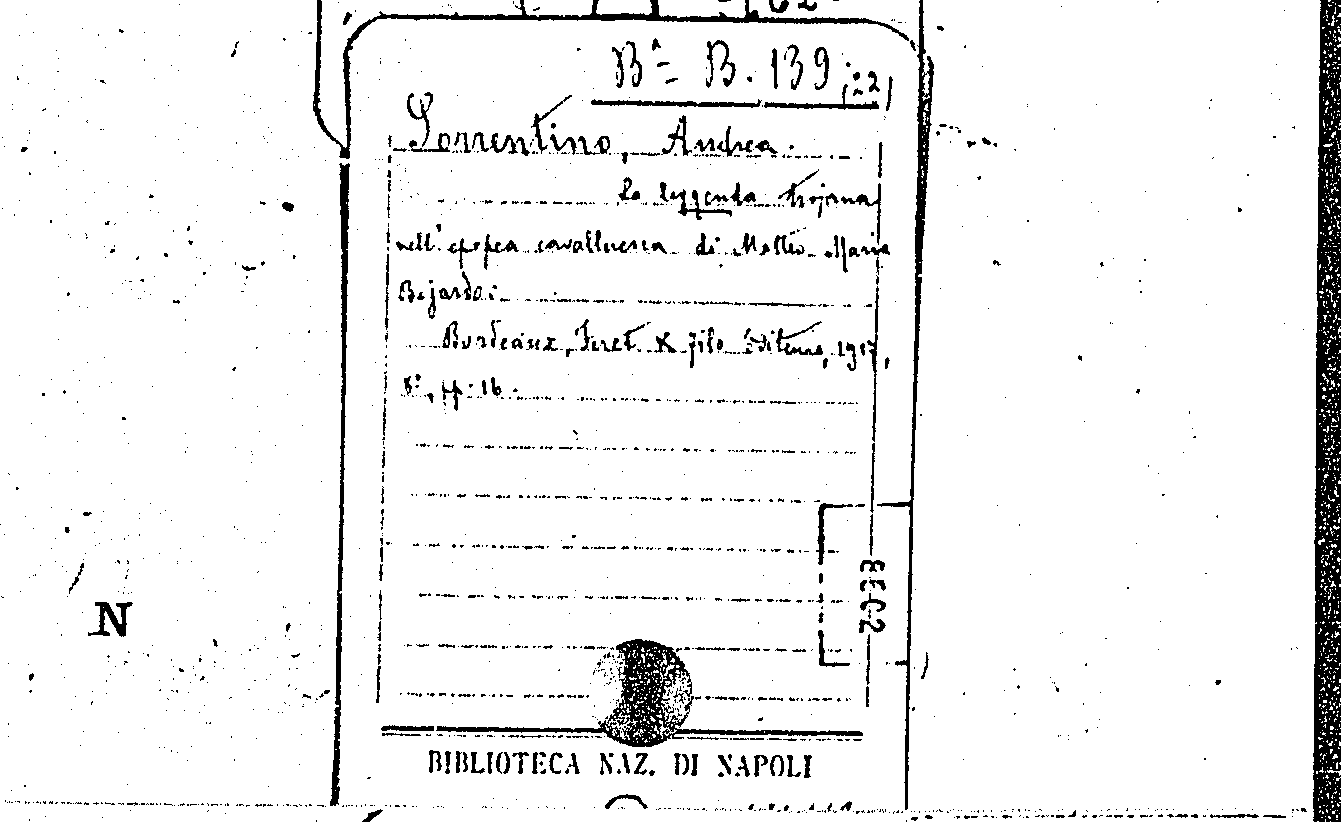 Bª= B. 139 (:2)
Sorrentino, Andrea.
La leggenda trojana
nell'epopea cavalleresca di Matteo Maria
Bojardo:
Bordeaux, Feret & fils éditeurs, 1917,
8°, pp. 16.
N
BIBLIOTECA NAZ. DI NAPOLI